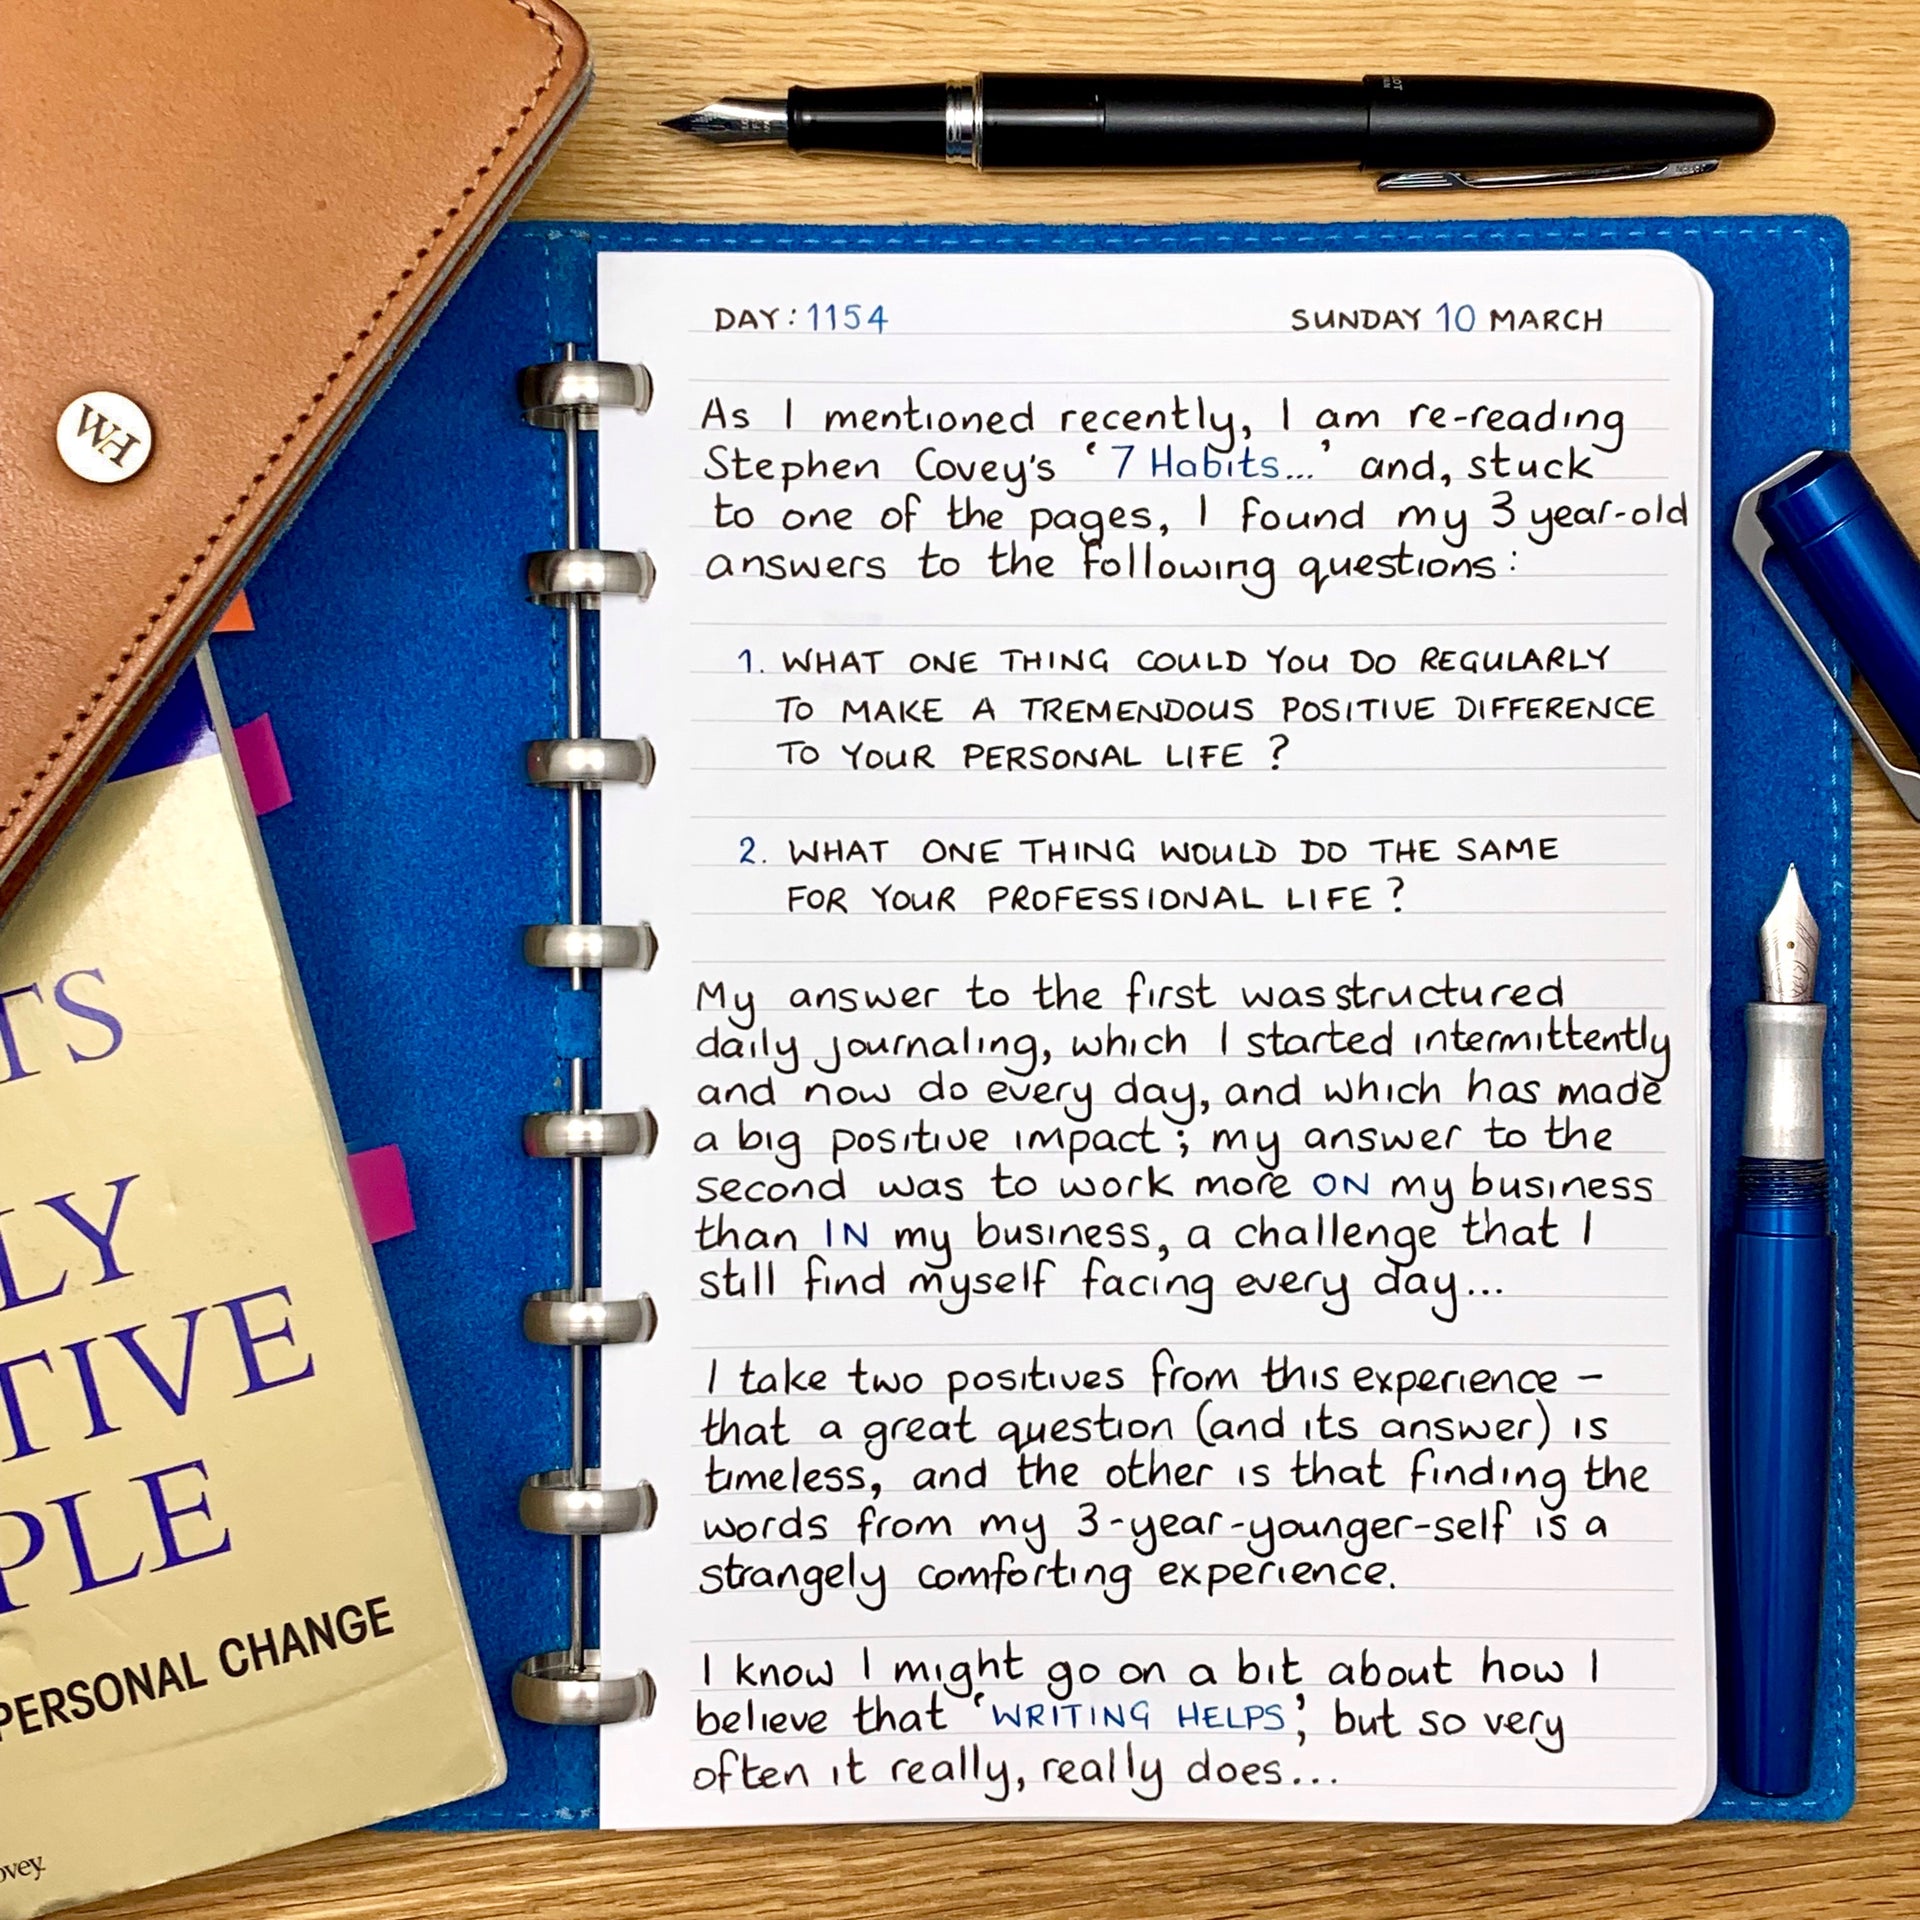 WH
DAY: 1154
SUNDAY 10 MARCH
As I mentioned recently, I am re-reading
Stephen Covey's '7 Habits...' and, stuck
to one of the pages, I found my 3 year-old
answers to the following questions:
1. WHAT ONE THING COULD YOU DO REGULARLY
TO MAKE A TREMENDOUS POSITIVE DIFFERENCE
TO YOUR PERSONAL LIFE?
2. WHAT ONE THING WOULD DO THE SAME
FOR YOUR PROFESSIONAL LIFE?
My answer to the first was structured
daily journaling, which I started intermittently
and now do every day, and which has made
a big positive impact; my answer to the
second was to work more ON my business
than IN my business, a challenge that I
still find myself facing every day...
I take two positives from this experience -
that a great question (and its answer) is
timeless, and the other is that finding the
words from my 3-year-younger-self is a
strangely comforting experience.
I know I might go on a bit about how I
believe that 'WRITING HELPS', but so very
often it really, really does...
TS
LY
TIVE
PLE
PERSONAL CHANGE
ovey